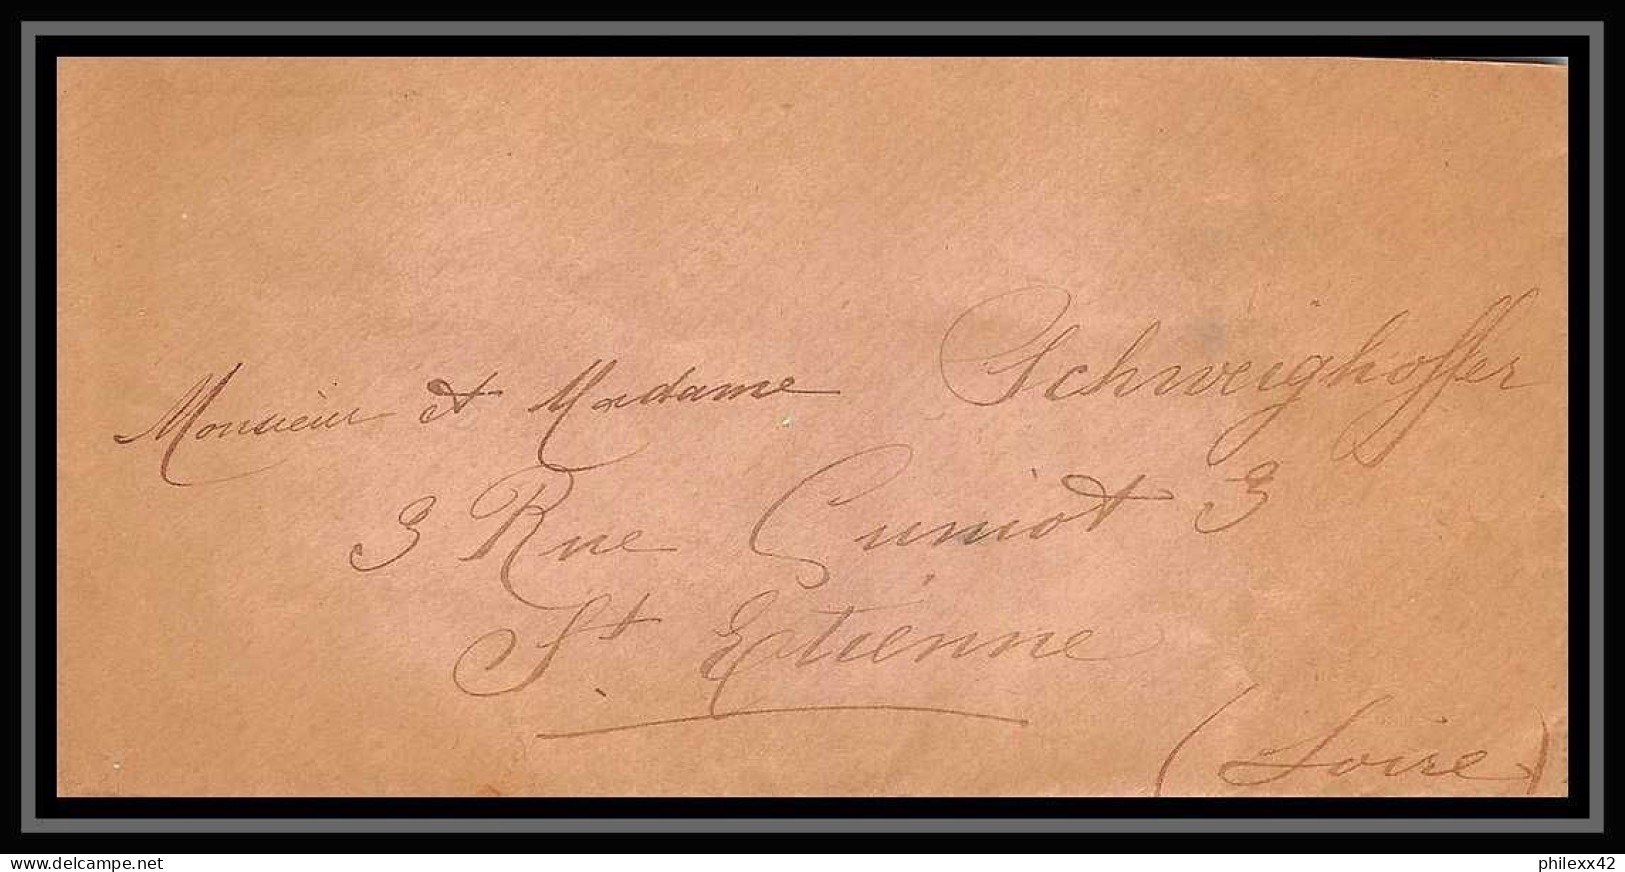 Monsieur et Madame Schweighoffer
3 Rue Cuniot 3
St. Etienne
(Loire)
delcampe.net
philexx42